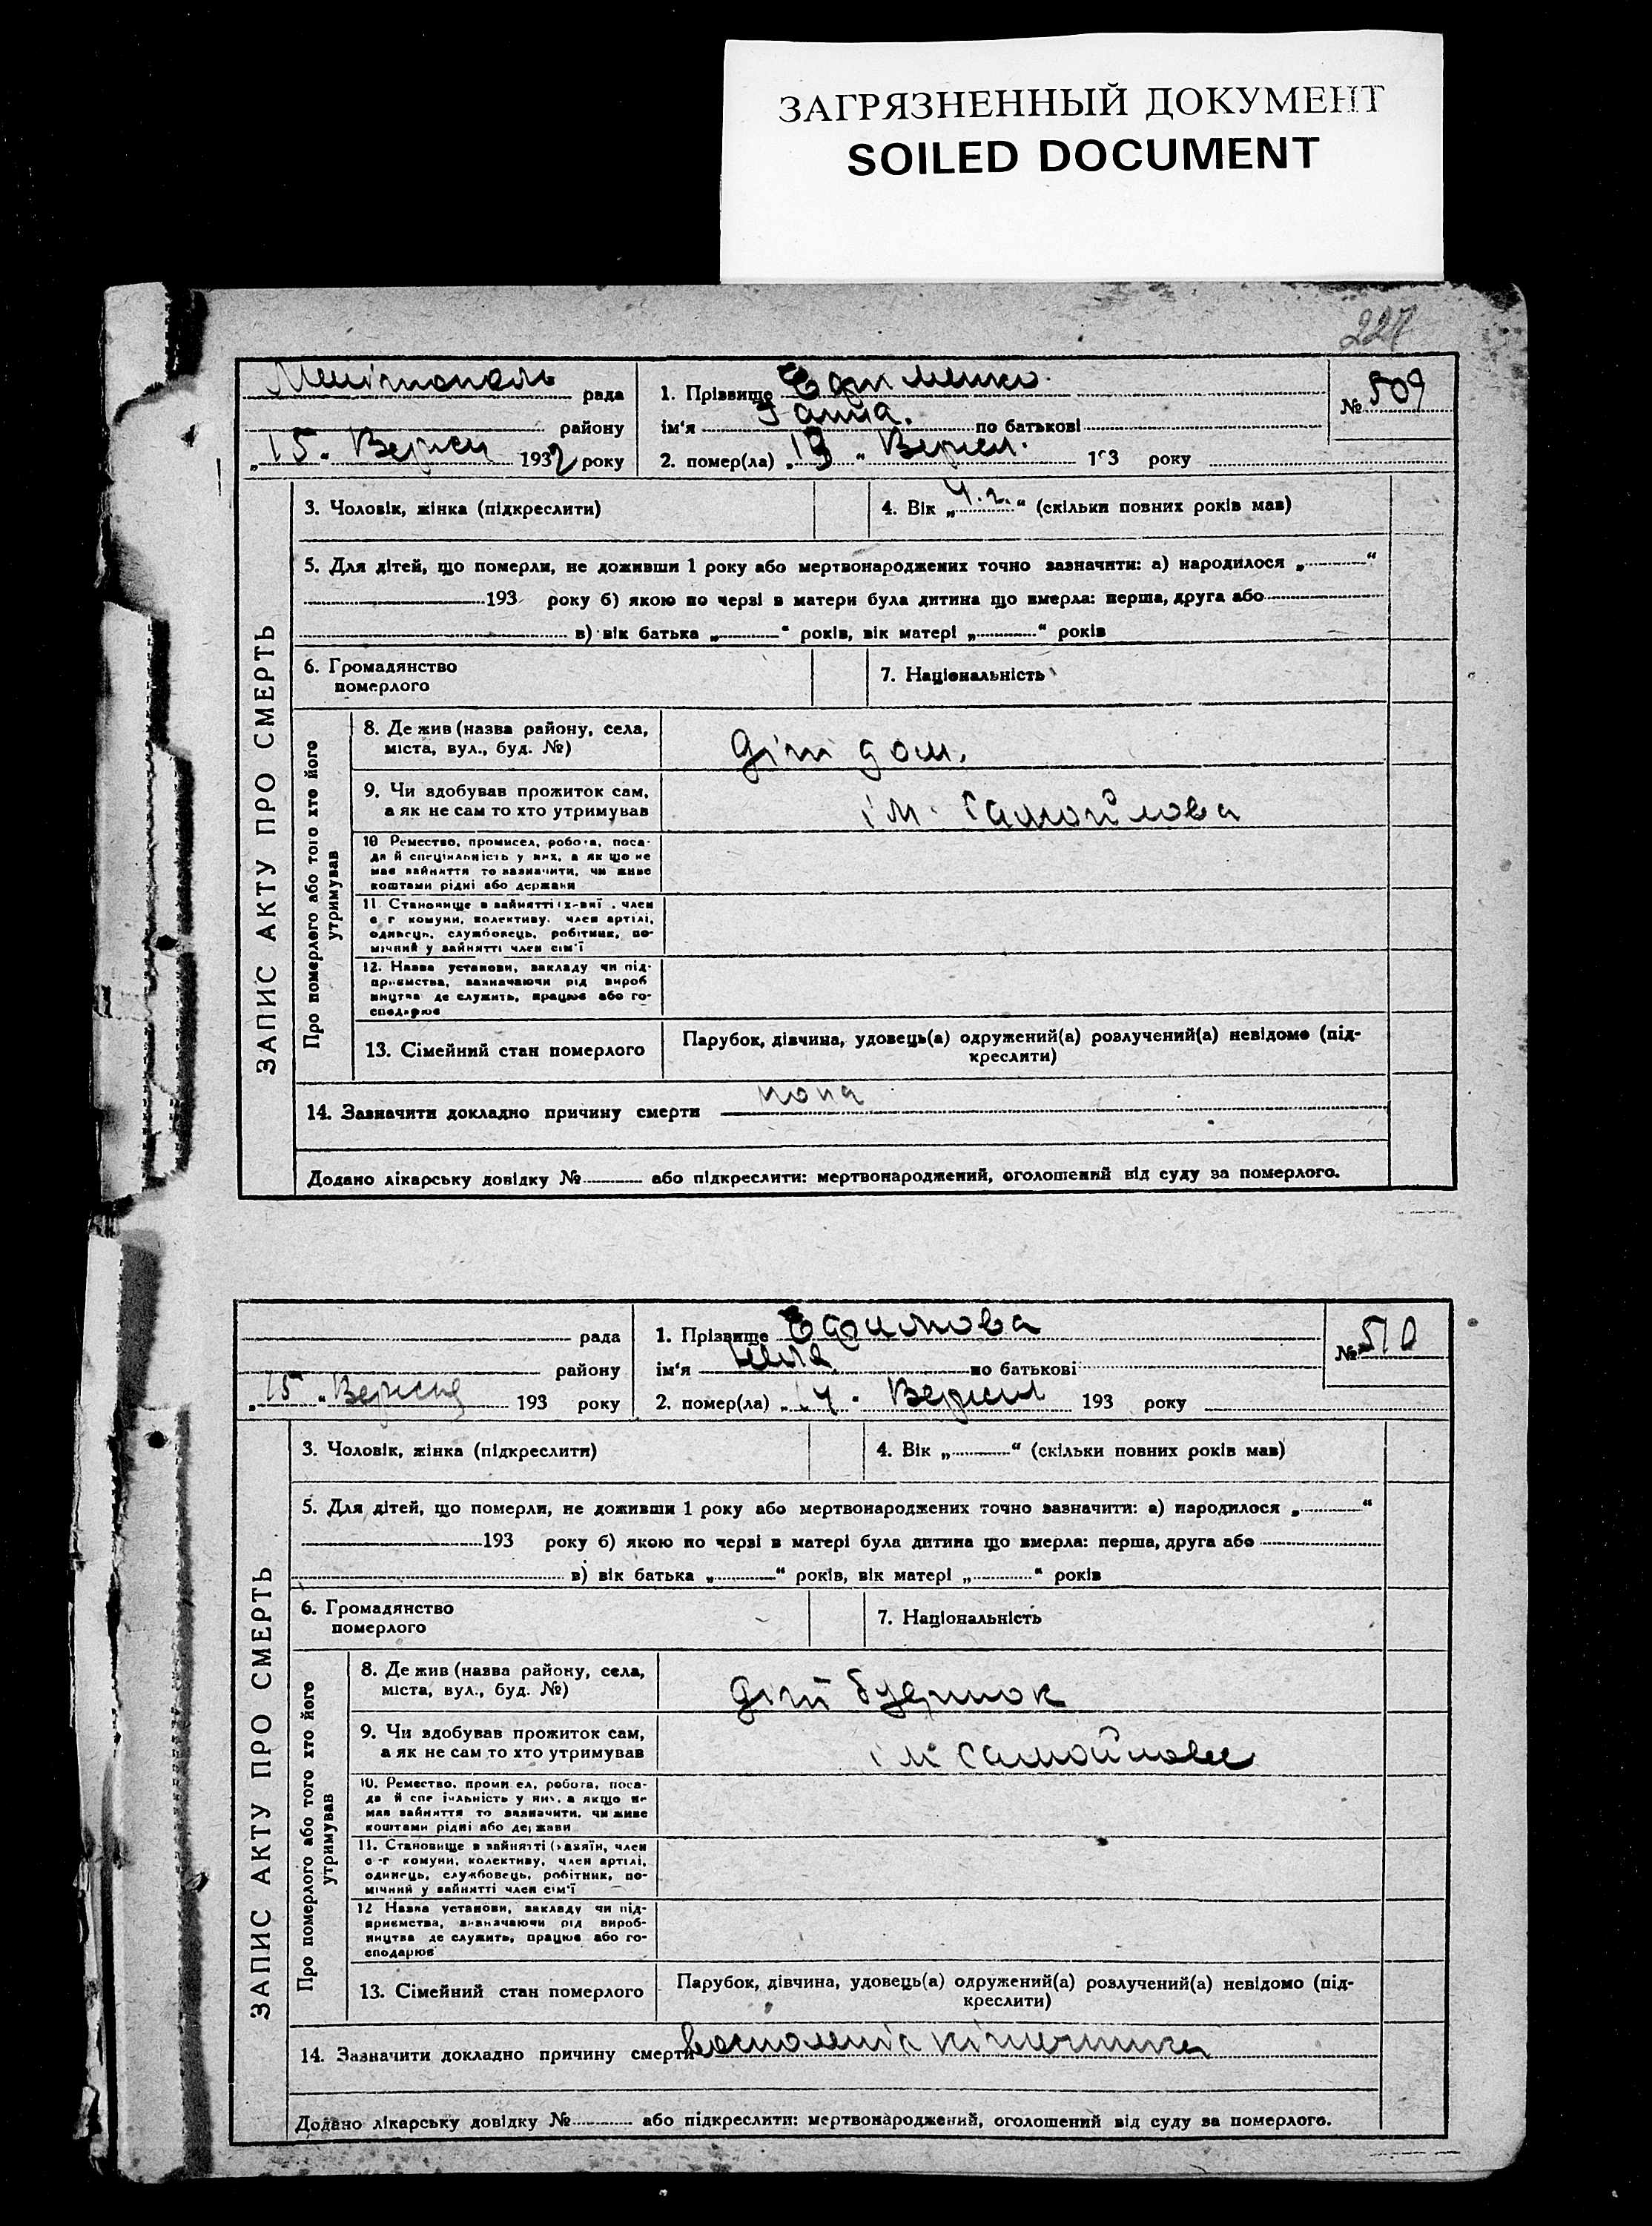 ЗАГРЯЗНЕННЫЙ ДОКУМЕНТ
SOILED DOCUMENT
227
Мелітополь рада
району
„15“ Верес 1932 року
1. Прізвище Ефименко
ім'я Ганна. по батькові
2. помер(ла) „13“ Верес. 193 року
№ 509
ЗАПИС АКТУ ПРО СМЕРТЬ
3. Чоловік, жінка (підкреслити)
4. Вік „4. г.“ (скільки повних років мав)
5. Для дітей, що померли, не доживши 1 року або мертвонароджених точно зазначити: а) народилося „ “
193 року б) якою по черзі в матери була дитина що вмерла: перша, друга або
в) вік батька „ “ років, вік матері „ “ років
6. Громадянство
померлого
7. Національність
Про померлого або того хто його
утримував
8. Де жив (назва району, села,
міста, вул., буд. №)
Діт дом.
9. Чи здобував прожиток сам,
а як не сам то хто утримував
ім. Самойлова
10 Ремество, промисел, робота, поса-
да й спеціяльність у них, а як що не
має зайняття то зазначити, чи живе
коштами рідні або держави
11 Становище в зайнятті член
с г комуни, колективу, член артілі,
одинець, службовець, робітник, по-
мічний у зайнятті член сім'ї
12. Назва установи, закладу чи під-
приємства, зазначаючи рід вироб
ництва де служить, працює або го-
сподарює
13. Сімейний стан померлого
Парубок, дівчина, удовець(а) одружений(а) розлучений(а) невідомо (під-
креслити)
14. Зазначити докладно причину смерти
Додано лікарську довідку № або підкреслити: мертвонароджений, оголошений від суду за померлого.
рада
району
„15“ Вересня 193 року
1. Прізвище Ефимова
ім'я по батькові
2. помер(ла) „14“ Верес 193 року
№ 510
ЗАПИС АКТУ ПРО СМЕРТЬ
3. Чоловік, жінка (підкреслити)
4. Вік „ “ (скільки повних років мав)
5. Для дітей, що померли, не доживши 1 року або мертвонароджених точно зазначити: а) народилося „ “
193 року б) якою по черзі в матері була дитина що вмерла: перша, друга або
в) вік батька „ “ років, вік матері „ “ років
6. Громадянство
померлого
7. Національність
Про померлого або того хто його
утримував
8. Де жив (назва району, села,
міста, вул., буд. №)
Діт будинок
9. Чи здобував прожиток сам,
а як не сам то хто утримував
ім Самойлова
10. Ремество, проми ел, робота, поса-
да й спе іяльність у них, а якщо не
має зайняття то зазначити, чи живе
коштами рідні або держави
11. Становище в зайнятті (хазяїн, член
с-г комуни, колективу, член артілі,
одинець, службовець, робітник, по-
мічний у зайнятті член сім'ї
12 Назва установи, закладу чи під-
приємства, зазначаючи рід вироб-
ництва де служить, працює або го-
сподарює
13. Сімейний стан померлого
Парубок, дівчина, удовець(а) одружений(а) розлучений(а) невідомо (під-
креслити)
14. Зазначити докладно причину смерти
Додано лікарську довідку № або підкреслити: мертвонароджений, оголошений від суду за померлого.